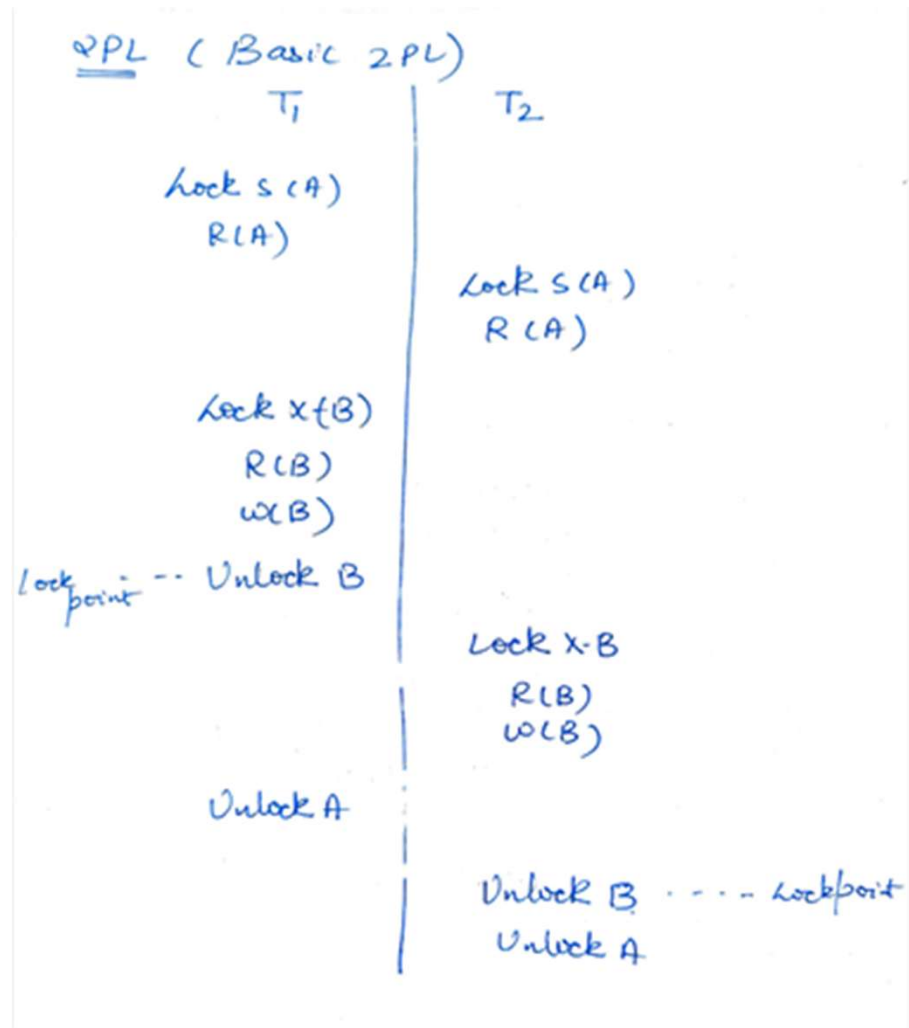 2PL (Basic 2PL)
T1 T2
Lock S(A)
R(A)
Lock S(A)
R(A)
Lock X(B)
R(B)
W(B)
Lock point --- Unlock B
Lock X-B
R(B)
W(B)
Unlock A
Unlock B ---- Lockpoint
Unlock A